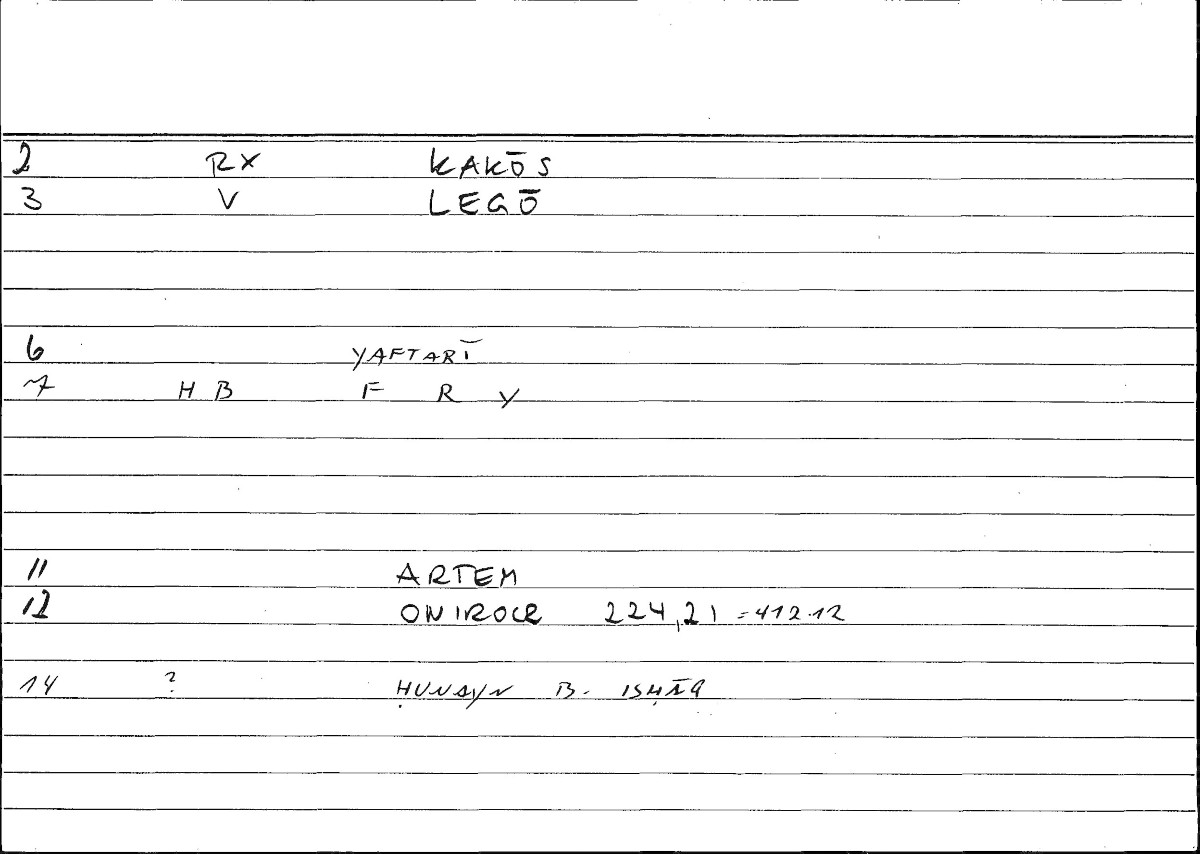 2 RX KAKŌS
3 V LEGŌ
6 YAFTARĪ
7 H B F R Y
11 ARTEM
12 ONIROCR 224,21 = 412.12
14 ? ḤUNAYN B. ISḤĀQ